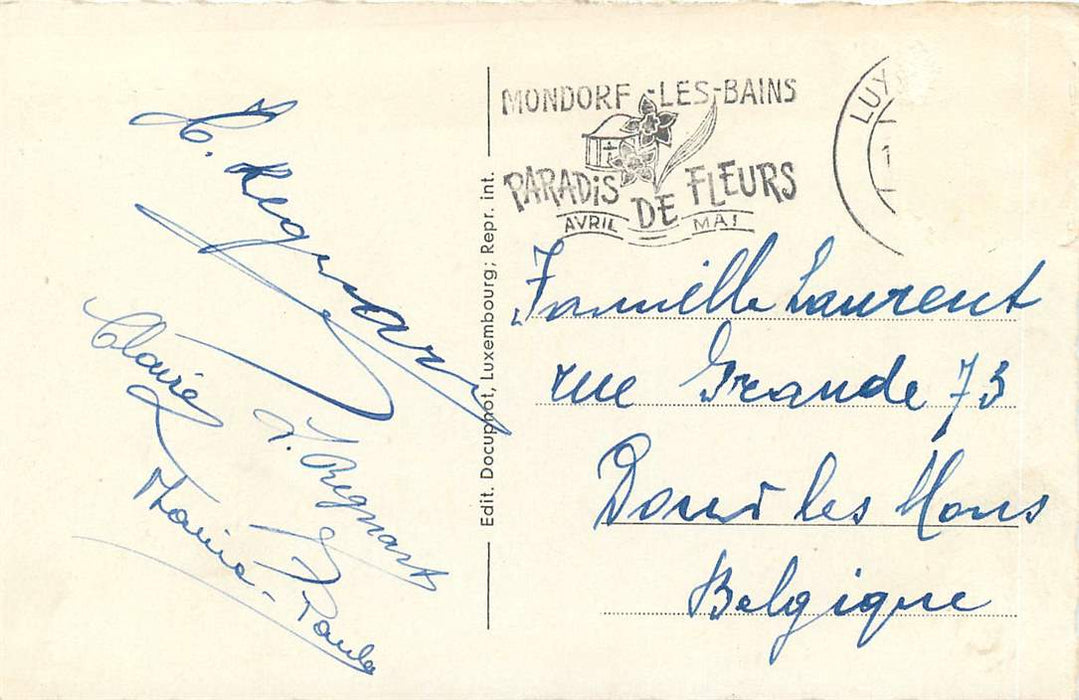 MONDORF-LES-BAINS
PARADIS DE FLEURS
AVRIL MAI
LUX
1
Regnart
Claire
J. Regnart
Marie-Paule
Edit. Docuphot, Luxembourg; Repr. int.
Famille Laurent
rue Grande 73
Dour les Mons
Belgique